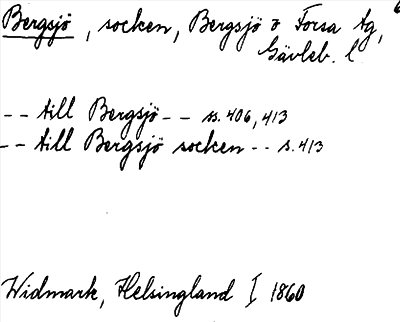 Bergsjö, socken, Bergsjö o Forsa tg,
Gävleb. l.
-- till Bergsjö -- ss. 406, 413
-- till Bergsjö socken -- s. 413
Widmark, Helsingland I 1860